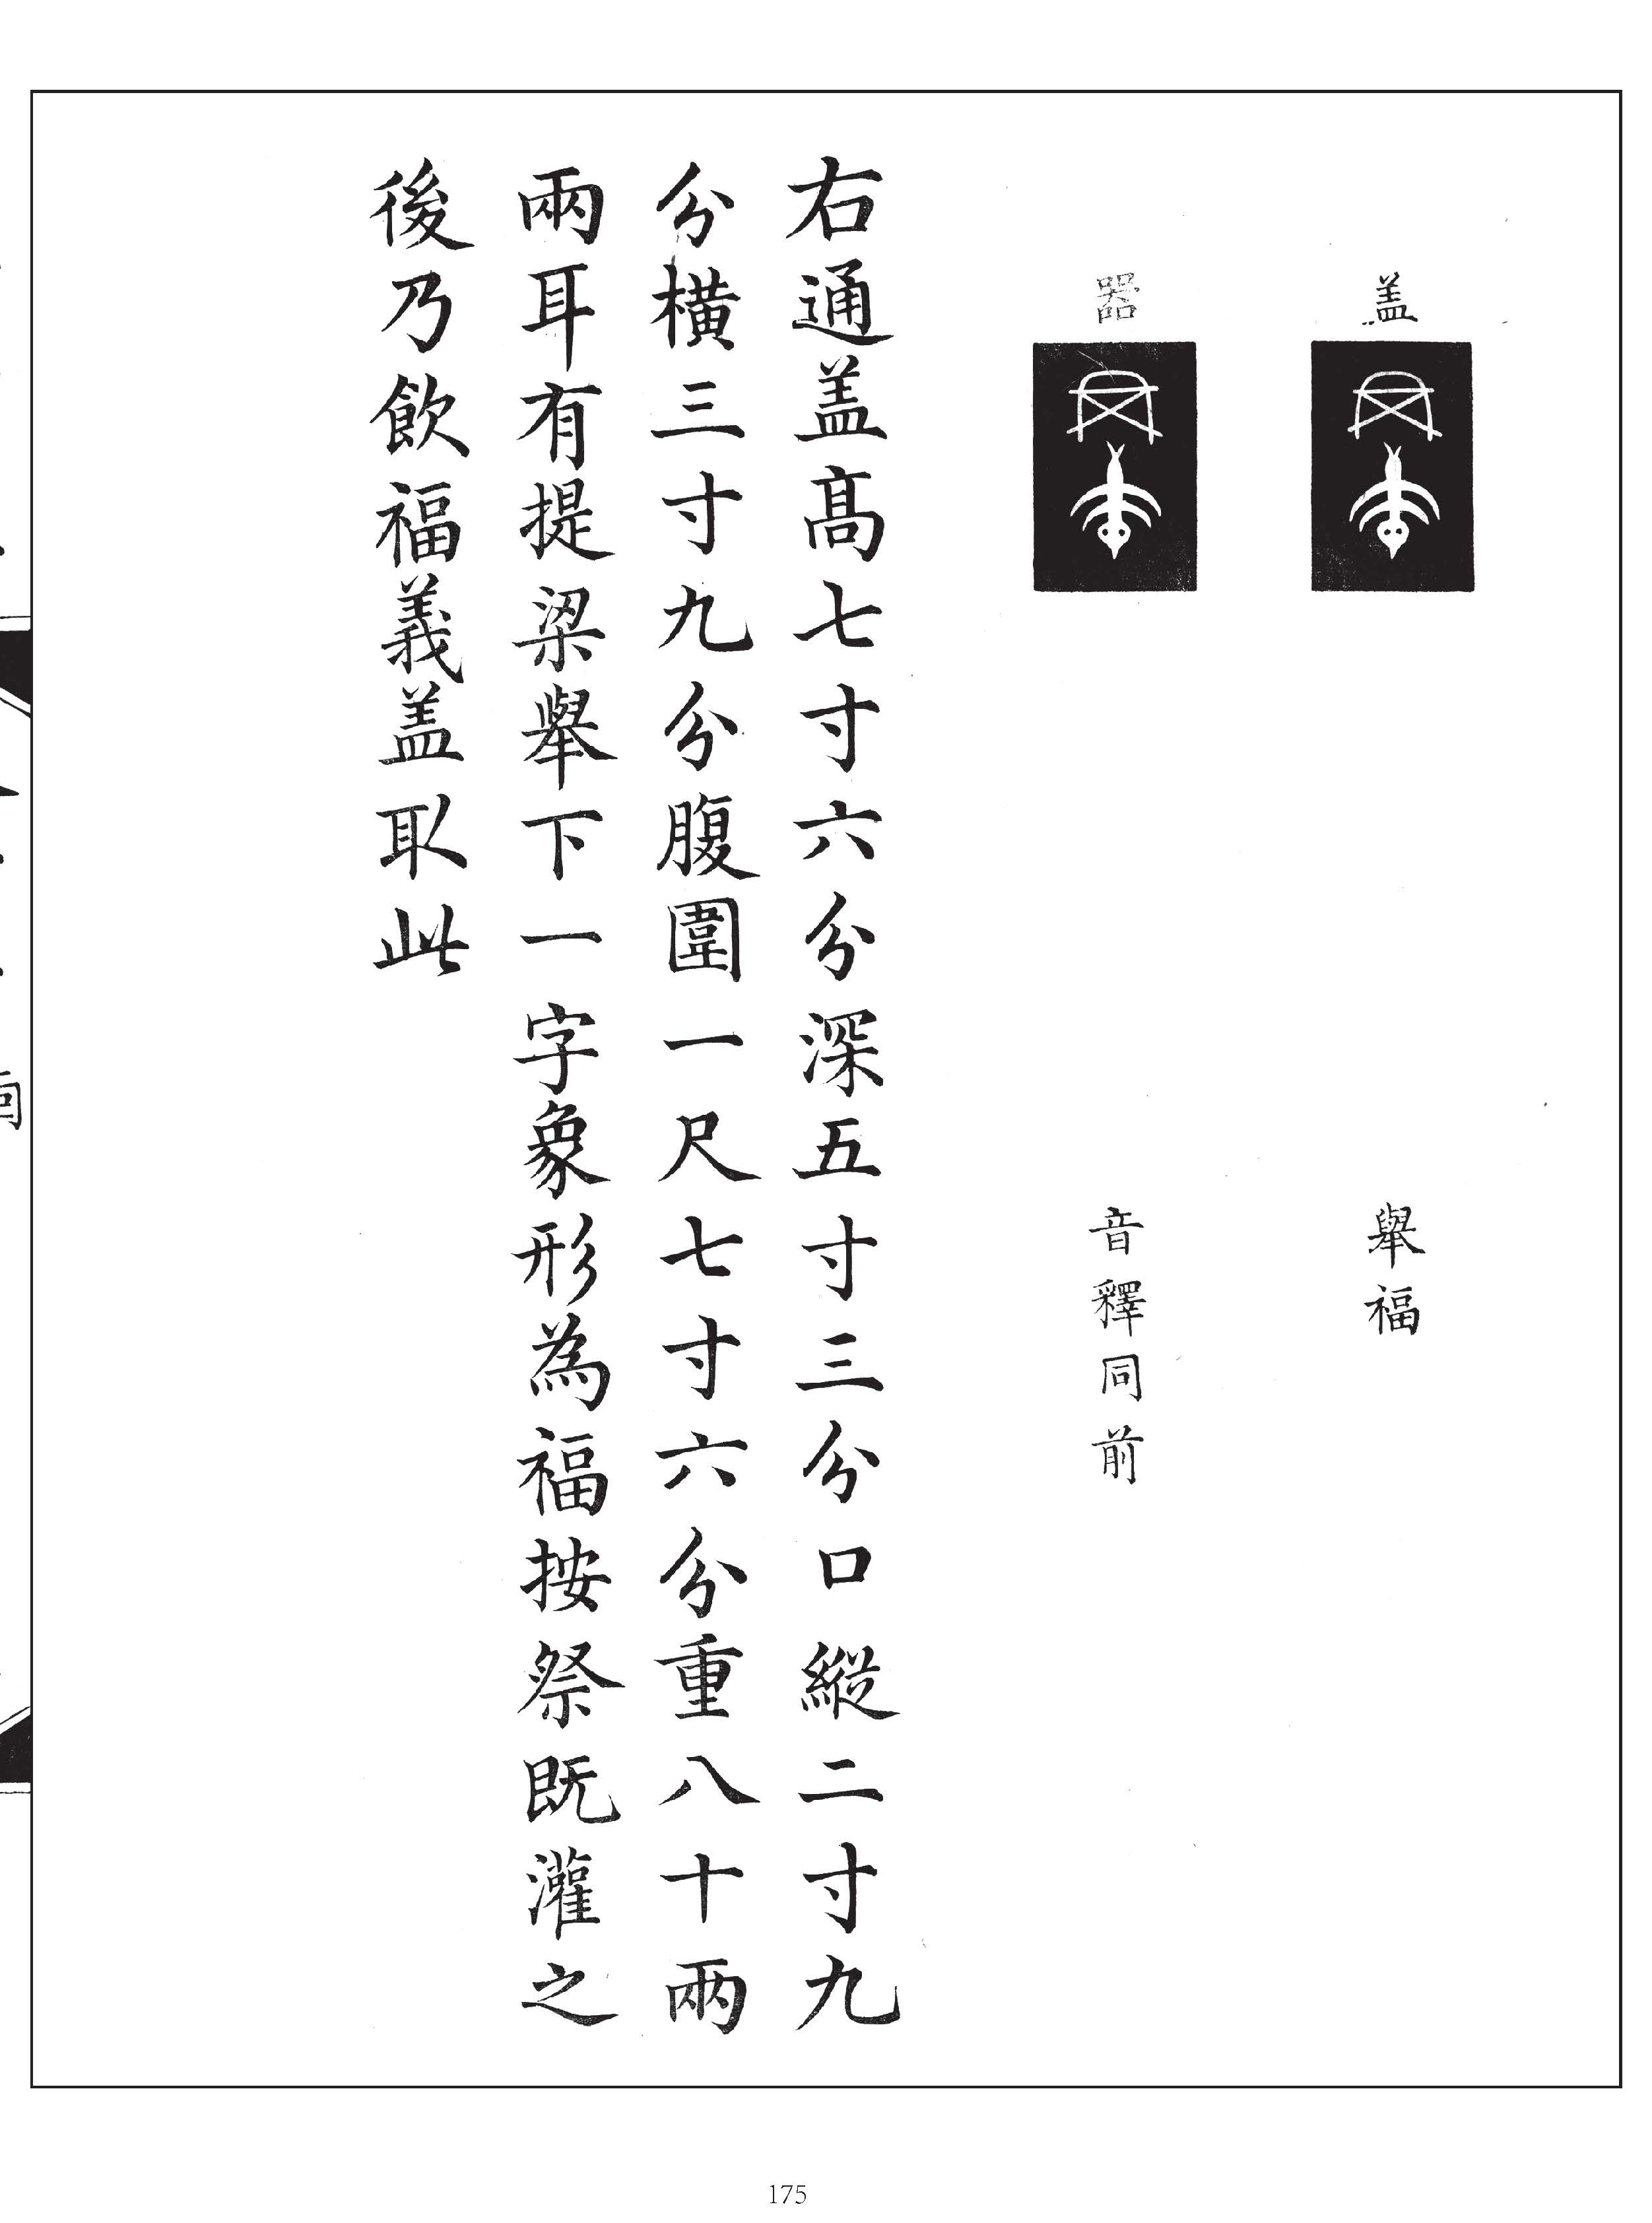 盖
舉福
器
音釋同前
右通盖髙七寸六分深五寸三分口縱二寸九
分横三寸九分腹圍一尺七寸六分重八十兩
兩耳有提梁舉下一字象形為福按祭既灌之
後乃飲福義盖取此
175